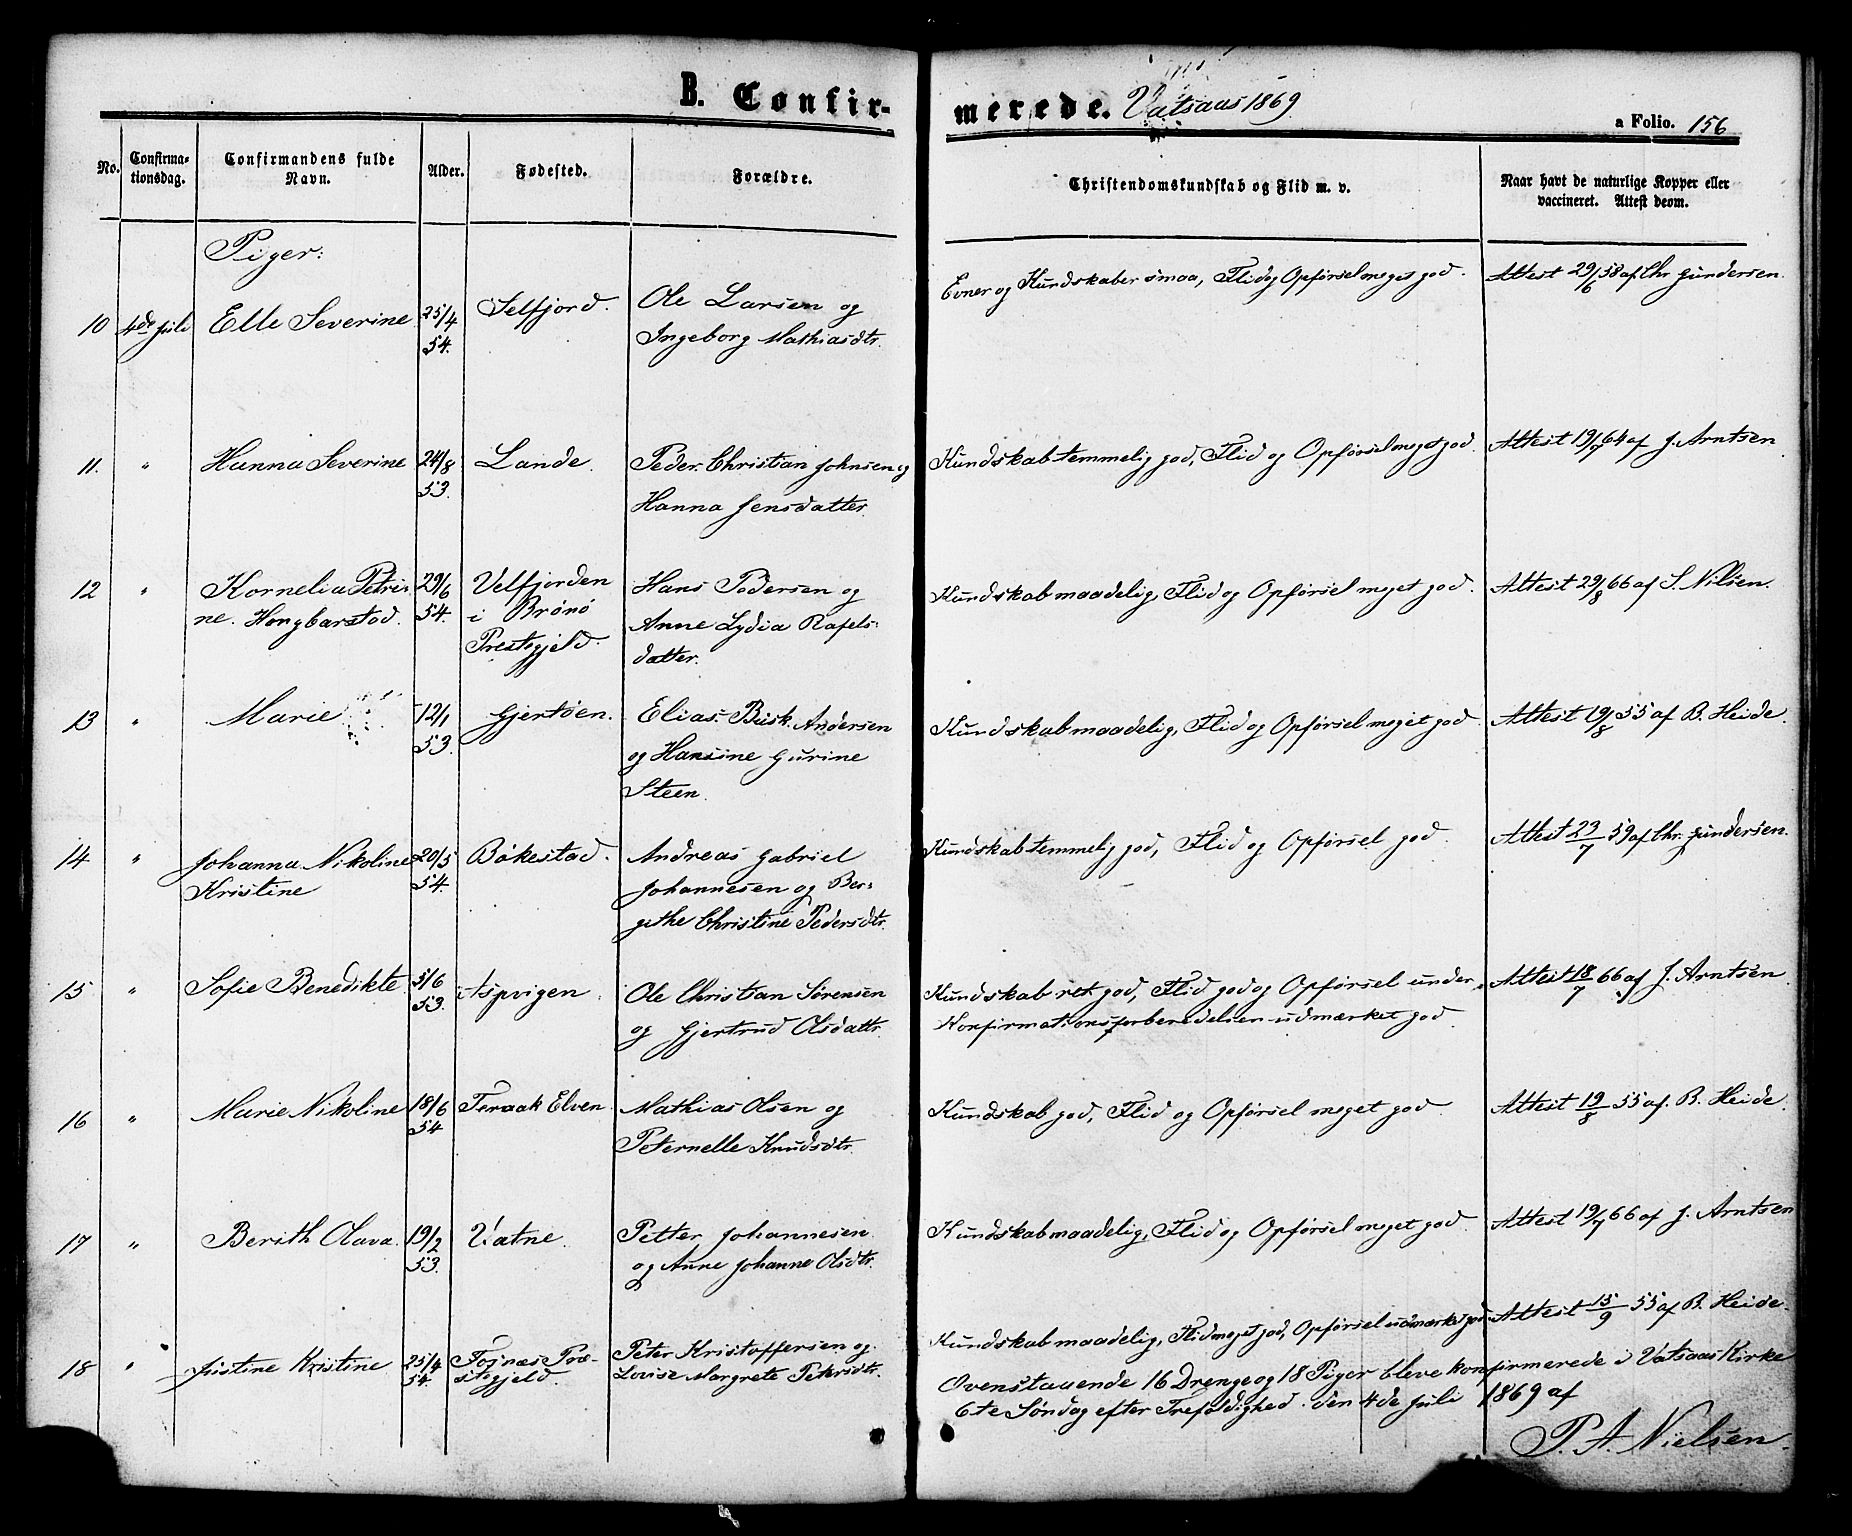 B. Confir-
merede. Vatsaas 1869
a Folio. 156
No.
Confirma-
tionsdag.
Confirmandens fulde
Navn.
Alder.
Fødested.
Forældre.
Christendomskundskab og Flid m. v.
Naar havt de naturlige Kopper eller
vaccineret. Attest derom.
Piger:
10 4de Juli Elle Severine 25/4 Selfjord. Ole Larsen og Evner og Kundskaber smaa, Flid og Opførsel meget god. Attest 29/6 58 af Chr Gundersen.
54. Ingeborg Mathiasdtr.
11. " Hanna Severine 24/8 Lande. Peder Christian Johnsen og Kundskab temmelig god, Flid og Opførsel meget god. Attest 19/7 64 af J. Arntsen
53. Hanna Jensdatter.
12 " Kornelia Petri- 29/6 Velfjorden Hans Pedersen og Kundskab maadelig, Flid og Opførsel meget god. Attest 29/8 66 af S. Nilsen.
ne. Hongbarstad. 54. i Brønø Anne Lydia Rafels-
Prestegjeld. datter.
13 " Marie 12/1 Gjertøen. Elias Andersen Kundskab maadelig, Flid og Opførsel meget god Attest 19/8 55 af B. Heide.
53. og Hansine Gurine
Steen.
14 " Johanna Nikoline 20/5 Bøkestad. Andreas Gabriel Kundskab temmelig god, Flid og Opførsel god. Attest 23/7 59 af Chr. Gundersen.
Kristine 54. Johannesen og Ber-
githe Christine Pedersdtr.
15 " Sofie Benedikte 5/6 Aspvigen Ole Christian Sørensen Kundskab ret god, Flid god og Opførsel under Attest 18/7 66 af J. Arntsen
53. og Gjertrud Olsdattr. Konfirmationsforberedelsen udmærket god.
16 " Marie Nikoline 18/6 Elven Mathias Olsen og Kundskab god, Flid og Opførsel meget god. Attest 19/8 55 af. B. Heide.
54 Peternelle Knudsdtr.
17 " Berith Olava. 19/2 Vatne. Petter Johannesen Kundskab maadelig, Flid og Opførsel meget god. Attest 19/7 66 af J. Arntsen
53. og Anne Johanne Olsdtr.
18 " Justine Kristine 25/4 Fosnæs Præ- Peter Kristoffersen og Kundskab maadelig, Flid meget god, Opførsel udmærket god. Attest 15/9 55 af B. Heide.
54. stegjeld. Lovise Margrete Petersdtr.
Ovenstaaende 16 Drenge og 18 Piger bleve konfirmerede i Vatsaas Kirke
6te Søndag efter Trefoldighed. den 4de Juli 1869 af
P. A. Nielsen.